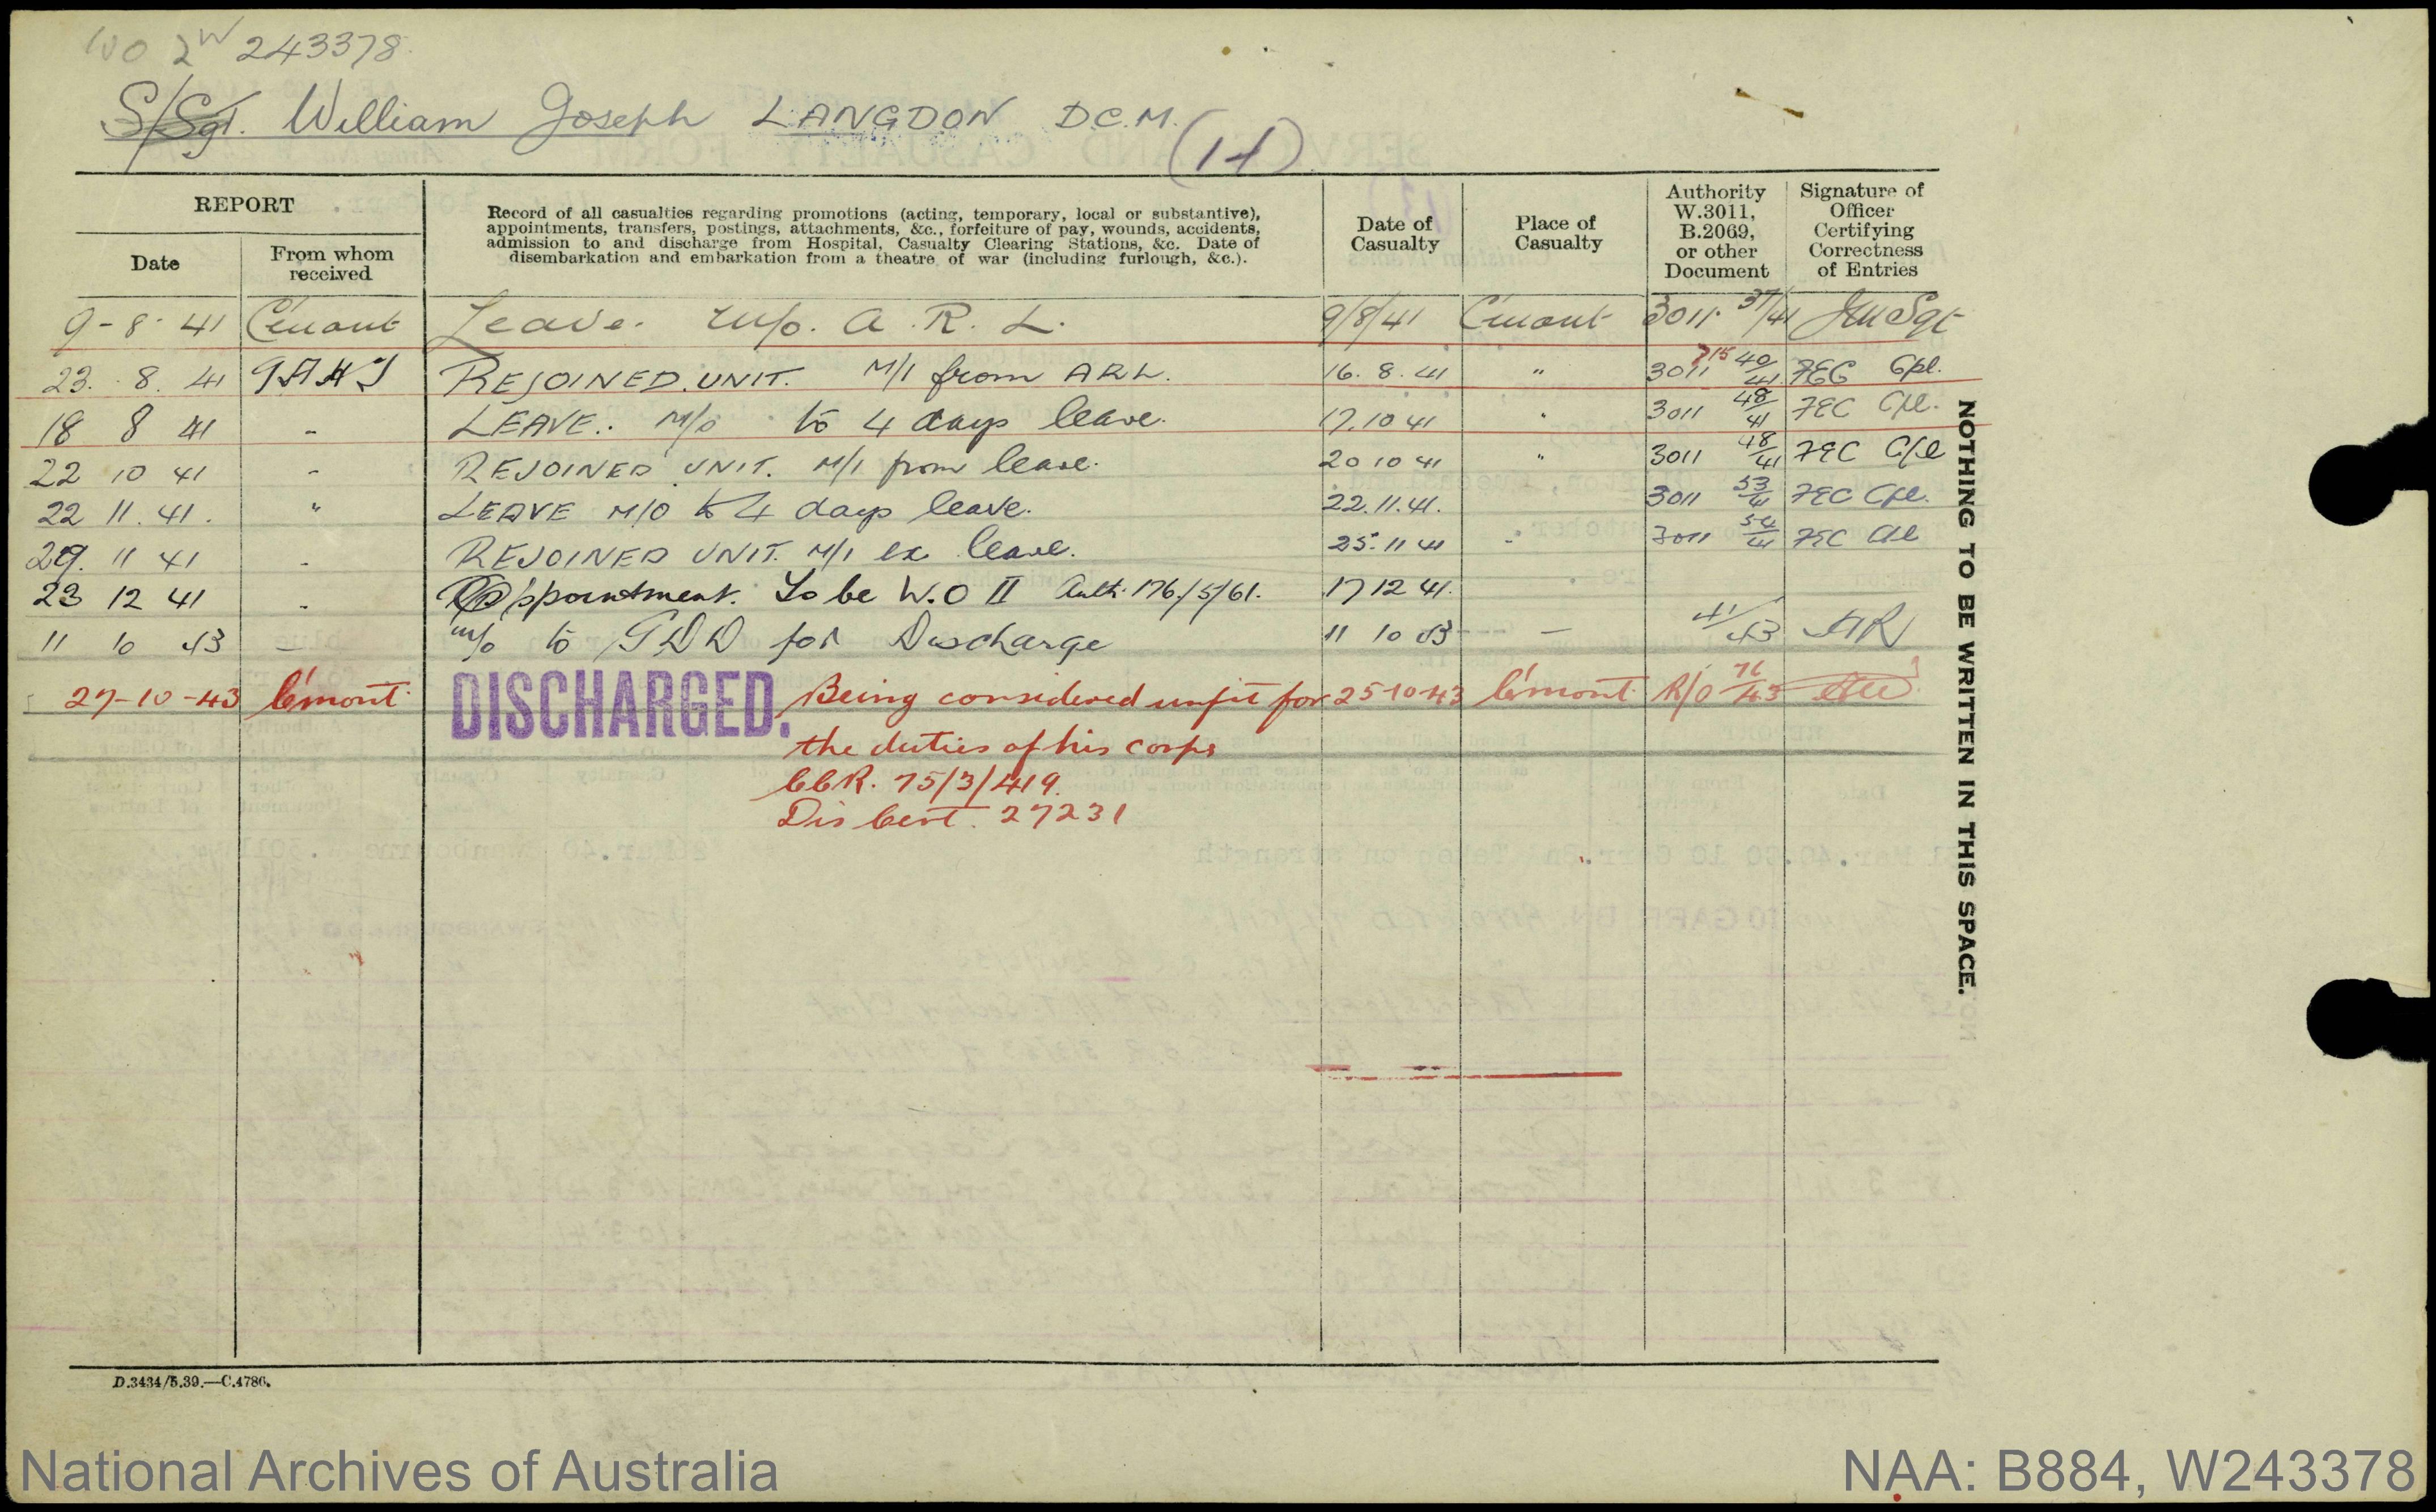 WO 2 W 243378
S/Sgt. William Joseph LANGDON D.C.M. (14)
REPORT
Date
From whom received
Record of all casualties regarding promotions (acting, temporary, local or substantive),
appointments, transfers, postings, attachments, &c., forfeiture of pay, wounds, accidents,
admission to and discharge from Hospital, Casualty Clearing Stations, &c. Date of
disembarkation and embarkation from a theatre of war (including furlough, &c.).
Date of Casualty
Place of Casualty
Authority W.3011, B.2069, or other Document
Signature of Officer Certifying Correctness of Entries
9-8-41 C'mont Leave. m/o. A.R.L. 9/8/41 C'mont 3011 37/41 Sgt
23.8.41 REJOINED.UNIT. M/I from ARL. 16.8.41 " 3011 40/41 FEC Cpl.
18 8 41 - LEAVE. M/o to 4 days leave. 17.10 41 " 3011 48/41 FEC Cpl.
22 10 41 - REJOINED UNIT. M/I from leave. 20 10 41 " 3011 48/41 FEC Cpl
22 11.41. " LEAVE M/O to 4 days leave. 22.11.41. 3011 53/41 FEC Cpl.
29. 11 41 - REJOINED UNIT. M/I ex leave. 25.11 41 - 3011 54/41 FEC Cpl
23 12 41 - Appointment. To be W.O II Auth. 176/5/61. 17 12 41.
11 10 43 - m/o to GDD for Discharge 11 10 43 - 41/43 AR
27-10-43 C'mont DISCHARGED. Being considered unfit for 25-10-43 C'mont R/O 76/43
the duties of his corps
CCR. 75/3/419.
Dis Cert. 27231
NOTHING TO BE WRITTEN IN THIS SPACE.
D.3434/5.39.—C.4786.
National Archives of Australia
NAA: B884, W243378